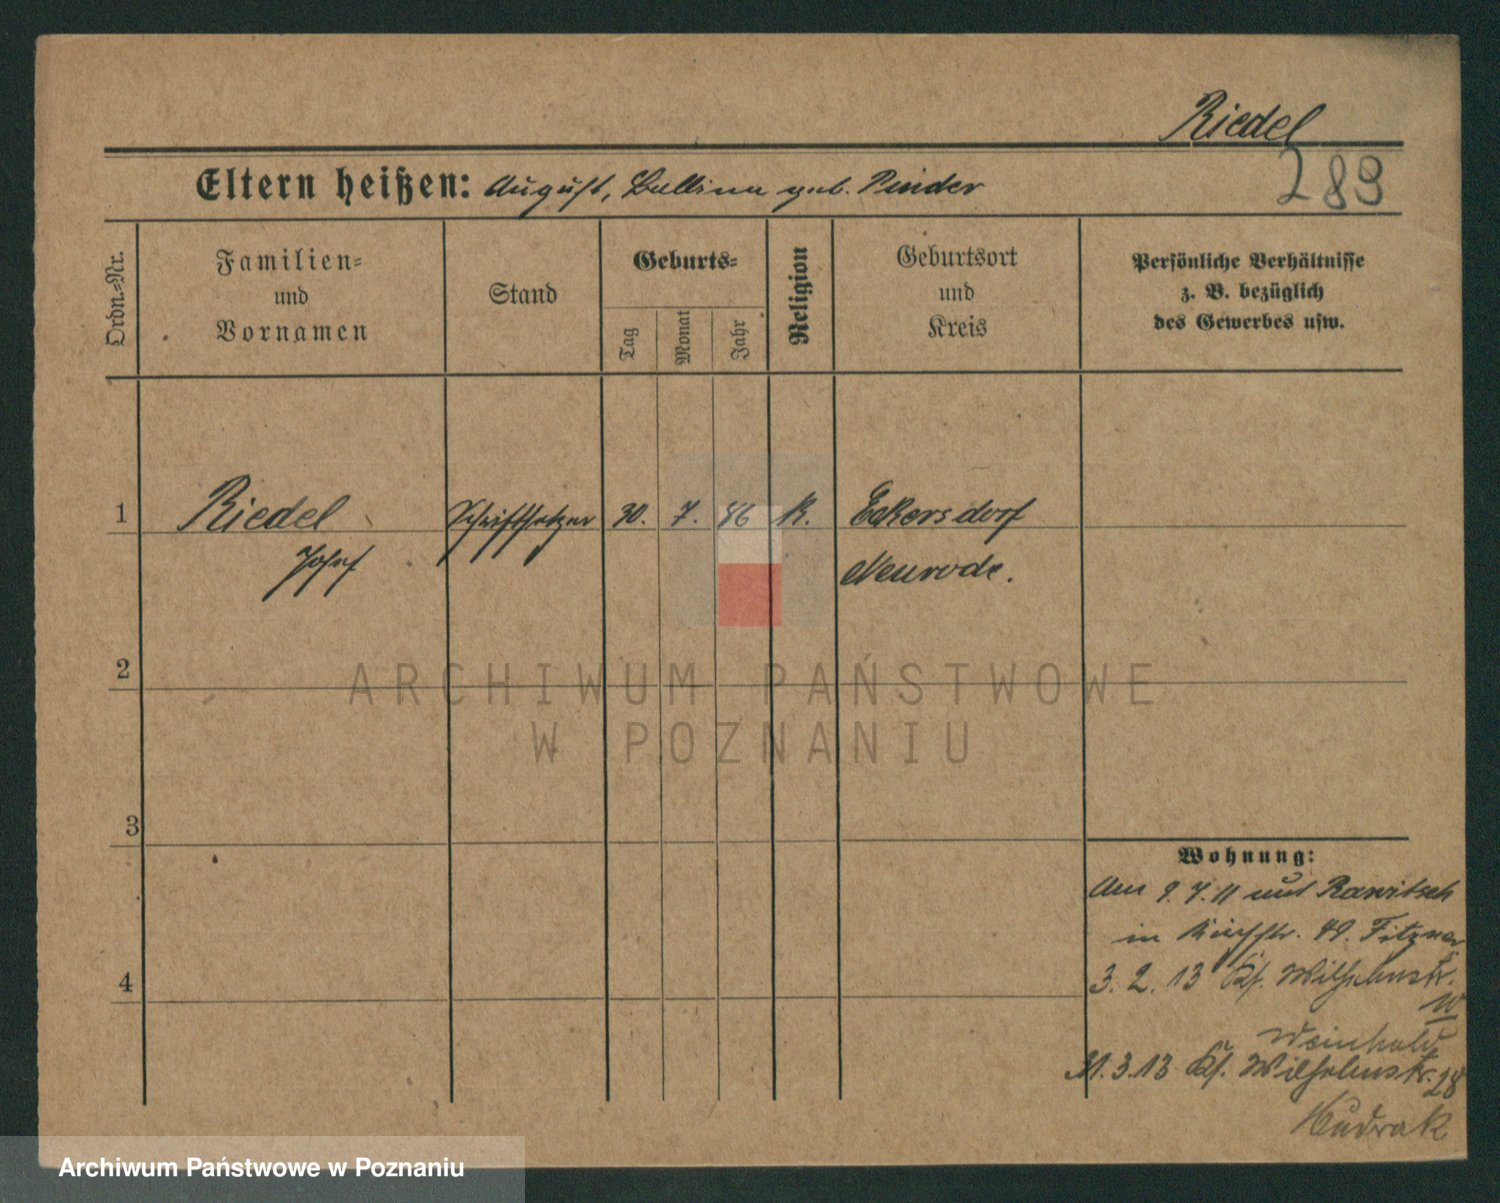 Riedel
289
Eltern heißen: August, geb. Pinder
Ordn.-Nr.
Familien-
und
Vornamen
Stand
Geburts-
Tag
Monat
Jahr
Religion
Geburtsort
und
Kreis
Persönliche Verhältnisse
z. B. bezüglich
des Gewerbes usw.
1
Riedel
Schriftsetzer
30.
7.
86
K.
Eckersdorf
Josef
Neurode.
2
ARCHIWUM PAŃSTWOWE
W POZNANIU
3
Wohnung:
Am 9.7.11 aus Rawitsch
in 49. Fitzner
4
3.2.13 Wilhelmstr.
10
Weinhold
31.3.13 Wilhelmstr. 28
Hudrak
Archiwum Państwowe w Poznaniu